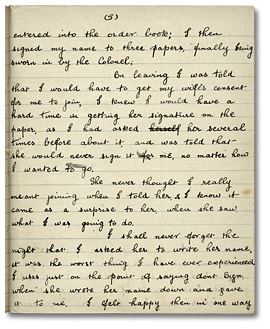 (5)
entered into the order book; I then
signed my name to three papers, finally being
sworn in by the Colonel;
On leaving I was told
that I would have to get my wife's consent
for me to join, I knew I would have a
hard time in getting her signature on the
paper, as I had asked herself her several
times before about it, and was told that
she would never sign it for me, no matter how
I wanted to go.
She never thought I really
meant joining when I told her, & I know it
came as a surprise to her, when she saw
what I was going to do.
I shall never forget the
night that I asked her to write her name,
it was the worst thing I have ever experienced
I was just on the point of saying dont sign,
when she wrote her name down and gave
it to me, I felt happy then in one way